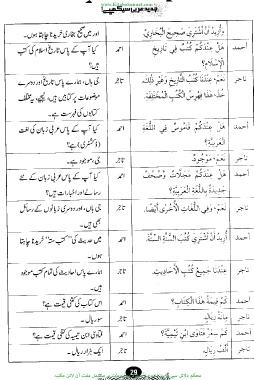 www.KitaboSunnat.com
جدید عربی سیکھیے
وَأُرِيدُ أَنْ أَشْتَرِيَ صَحِيحَ الْبُخَارِيِّ. اور میں صحیح بخاری خریدنا چاہتا ہوں۔
أحمد هَلْ عِنْدَكُمْ كُتُبٌ فِي تَارِيخِ الْإِسْلَامِ؟ احمد کیا آپ کے پاس تاریخ اسلام کی کتب ہیں؟
تاجر نَعَمْ، عِنْدَنَا كُتُبُ التَّارِيخِ وَغَيْرِ ذَٰلِكَ، خُذْ، هٰذَا فِهْرِسُ الْكُتُبِ الْمُخْتَلِفَةِ. تاجر جی ہاں، ہمارے پاس تاریخ اور دوسرے موضوعات پر کتابیں ہیں، لیجیے، یہ مختلف کتابوں کی فہرست ہے۔
أحمد هَلْ عِنْدَكُمْ قَامُوسٌ فِي اللُّغَةِ الْعَرَبِيَّةِ؟ احمد کیا آپ کے پاس عربی زبان کی لغت (ڈکشنری) ہے؟
تاجر نَعَمْ، مَوْجُودٌ. تاجر جی، موجود ہے۔
أحمد هَلْ عِنْدَكُمْ مَجَلَّاتٌ وَصُحُفٌ جَدِيدَةٌ بِاللُّغَةِ الْعَرَبِيَّةِ؟ احمد کیا آپ کے پاس عربی زبان کے نئے رسالے اور اخبارات ہیں؟
تاجر نَعَمْ، وَفِي اللُّغَاتِ الْأُخْرَىٰ أَيْضًا. تاجر جی ہاں، اور دوسری زبانوں کے رسائل بھی ہیں۔
أحمد أُرِيدُ أَنْ أَشْتَرِيَ كُتُبَ السُّنَّةِ السِّتَّةَ. احمد میں حدیث کی "کتب ستہ" خریدنا چاہتا ہوں۔
تاجر عِنْدَنَا جَمِيعُ كُتُبِ الْأَحَادِيثِ. تاجر ہمارے پاس احادیث کی تمام کتب موجود ہیں۔
أحمد كَمْ قِيمَةُ هٰذَا الْكِتَابِ؟ احمد اس کتاب کی کتنی قیمت ہے؟
تاجر مِائَةُ رِيَالٍ. تاجر سو ریال۔
أحمد كَمْ سِعْرُ فَتَاوَى ابْنِ تَيْمِيَّةَ؟ احمد فتاویٰ ابن تیمیہ کی کتنی قیمت ہے؟
تاجر أَلْفُ رِيَالٍ. تاجر ایک ہزار ریال۔
29